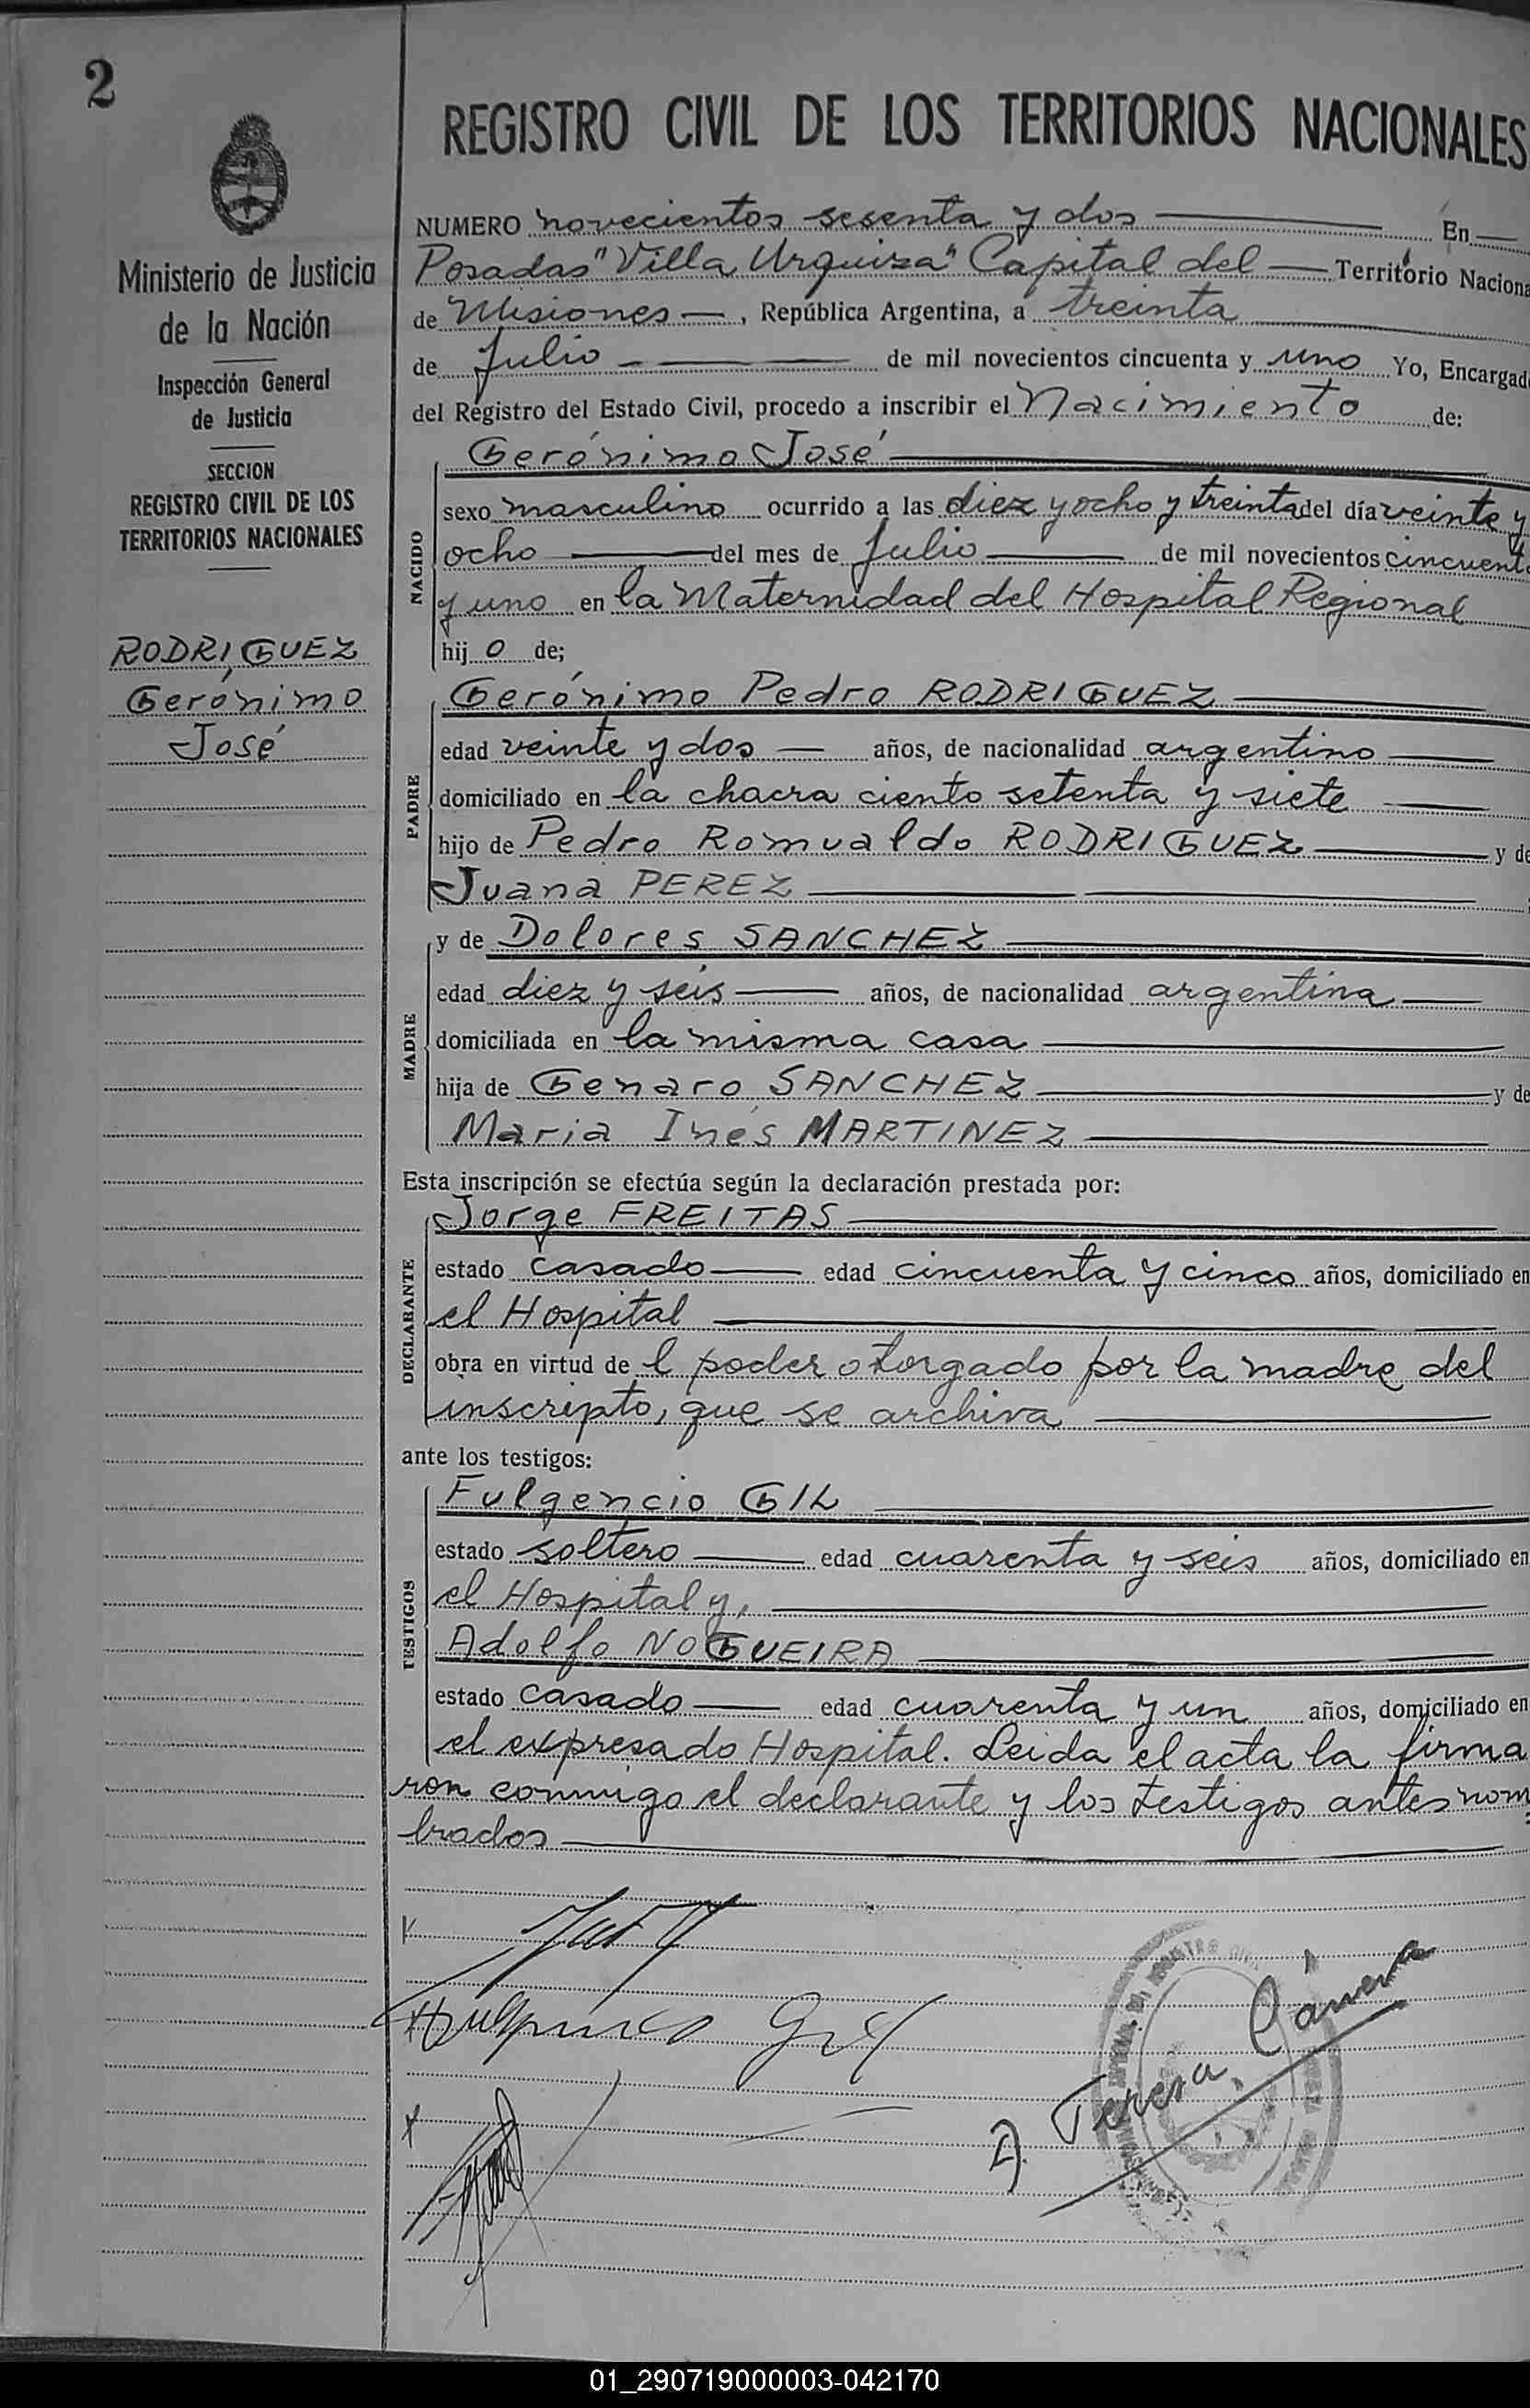 2
REGISTRO CIVIL DE LOS TERRITORIOS NACIONALES
Ministerio de Justicia
de la Nación
Inspección General
de Justicia
SECCION
REGISTRO CIVIL DE LOS
TERRITORIOS NACIONALES
RODRIGUEZ
Gerónimo
José
NUMERO novecientos sesenta y dos En
Posadas "Villa Urquiza" Capital del Territorio Naciona
de Misiones, República Argentina, a treinta
de Julio de mil novecientos cincuenta y uno Yo, Encargad
del Registro del Estado Civil, procedo a inscribir el Nacimiento de:
NACIDO
Gerónimo José
sexo masculino ocurrido a las diez y ocho y treinta del día veinte y
ocho del mes de Julio de mil novecientos cincuent
y uno en la Maternidad del Hospital Regional
hij o de;
PADRE
Gerónimo Pedro RODRIGUEZ
edad veinte y dos años, de nacionalidad argentino
domiciliado en la chacra ciento setenta y siete
hijo de Pedro Romualdo RODRIGUEZ y de
Juana PEREZ
MADRE
y de Dolores SANCHEZ
edad diez y seis años, de nacionalidad argentina
domiciliada en la misma casa
hija de Genaro SANCHEZ y de
Maria Inés MARTINEZ
Esta inscripción se efectúa según la declaración prestada por:
DECLARANTE
Jorge FREITAS
estado casado edad cincuenta y cinco años, domiciliado en
el Hospital
obra en virtud de l poder otorgado por la madre del
inscripto, que se archiva
ante los testigos:
TESTIGOS
Fulgencio GIL
estado soltero edad cuarenta y seis años, domiciliado en
el Hospital y,
Adolfo NOGUEIRA
estado casado edad cuarenta y un años, domiciliado en
el expresado Hospital. Leida el acta la firma
ron conmigo el declarante y los testigos antes nom
brados
Fulgencio Gil
Teresa Cámera
01_290719000003-042170